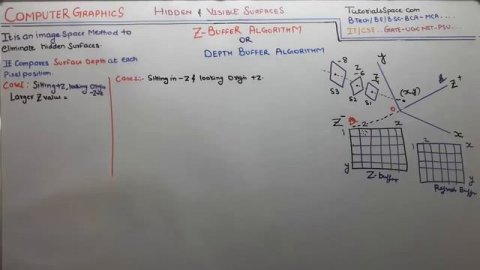 COMPUTER GRAPHICS
HIDDEN & VISIBLE SURFACES
TutorialsSpace.com
BTech/BE/BSC-BCA-MCA....
IT/CSE.. GATE-UGC NET-PSU..
It is an image Space Method to
eliminate hidden Surfaces.
Z-BUFFER ALGORITHM
OR
DEPTH BUFFER ALGORITHM
It Compares Surface Depth at each
Pixel position.
Case1: Sitting +Z, looking Origin
-Zve
Larger Z value =
Case2:- Sitting in -Z & looking Origin +Z.
-8
Z
-6
S3
S2
S1
y
(x,y)
Z+
0
x
Z-
1
2
x
y
Z-buffer
1
2
x
y
Refresh Buffer